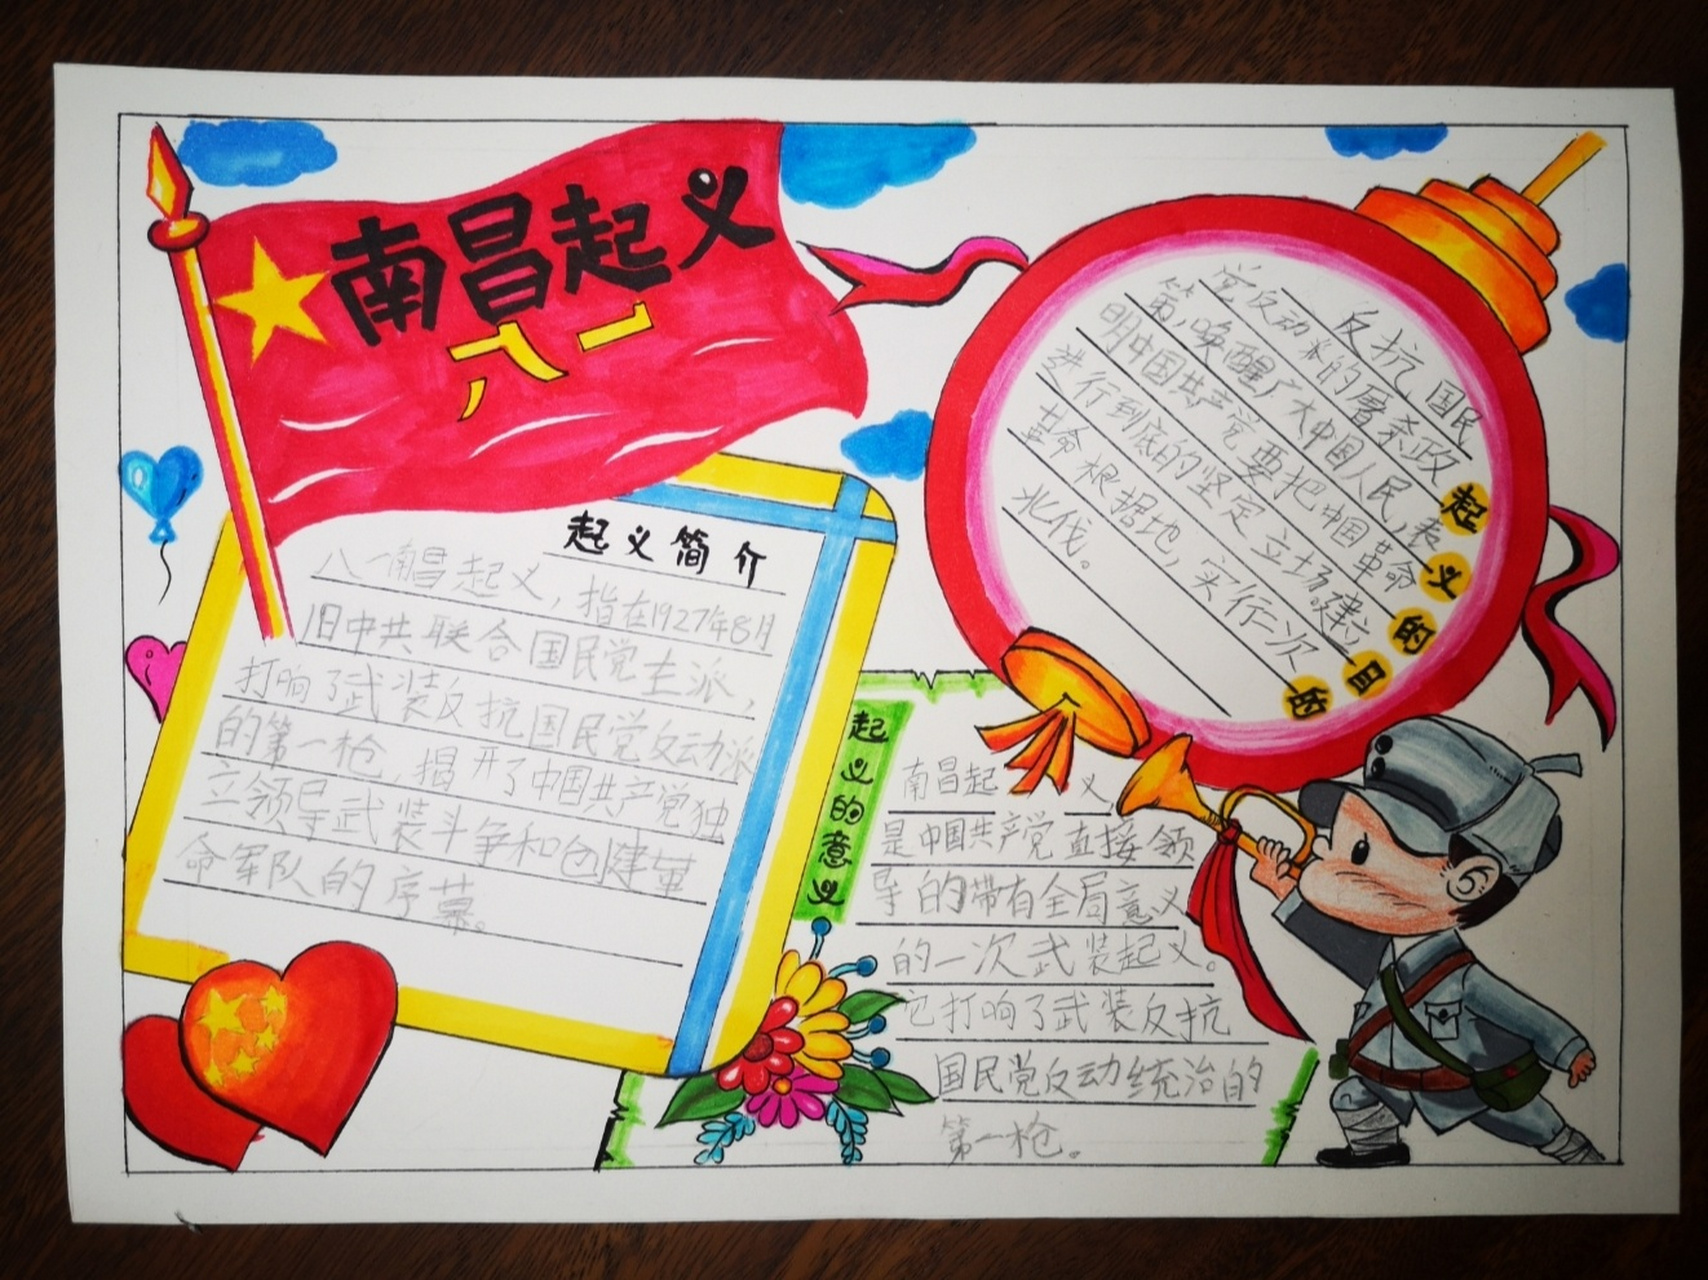 南昌起义
八一
起义简介
八一南昌起义，指在1927年8月
1日中共联合国民党左派，
打响了武装反抗国民党反动派
的第一枪，揭开了中国共产党独
立领导武装斗争和创建革
命军队的序幕。
起义的目的
反抗国民
党反动派的屠杀政
策，唤醒广大中国人民，表
明中国共产党要把中国革命
进行到底的坚定立场。建立
革命根据地，实行二次
北伐。
起义的意义
南昌起义
是中国共产党直接领
导的带有全局意义
的一次武装起义。
它打响了武装反抗
国民党反动统治的
第一枪。